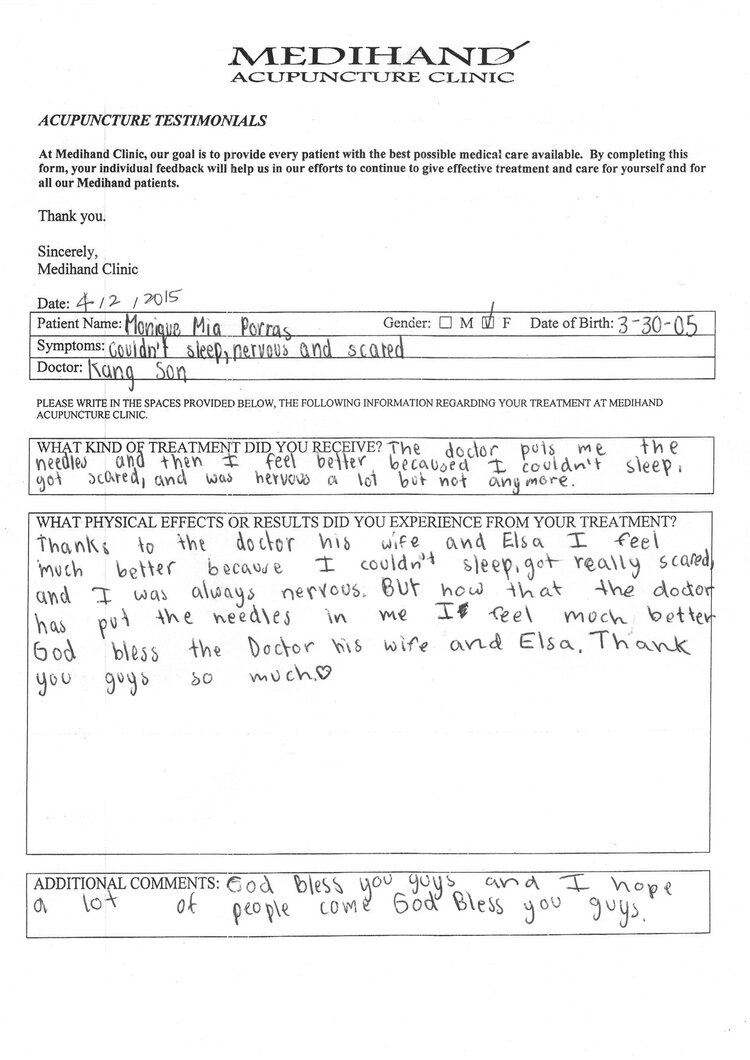 MEDIHAND
ACUPUNCTURE CLINIC
ACUPUNCTURE TESTIMONIALS
At Medihand Clinic, our goal is to provide every patient with the best possible medical care available. By completing this
form, your individual feedback will help us in our efforts to continue to give effective treatment and care for yourself and for
all our Medihand patients.
Thank you.
Sincerely,
Medihand Clinic
Date: 4/2/2015
Patient Name: Monique Mia Porras Gender: ☐ M ☑ F Date of Birth: 3-30-05
Symptoms: Couldn't sleep, nervous and scared
Doctor: Kang Son
PLEASE WRITE IN THE SPACES PROVIDED BELOW, THE FOLLOWING INFORMATION REGARDING YOUR TREATMENT AT MEDIHAND
ACUPUNCTURE CLINIC.
WHAT KIND OF TREATMENT DID YOU RECEIVE? The doctor puts me the
needles and then I feel better becaused I couldn't sleep,
got scared, and was nervous a lot but not anymore.
WHAT PHYSICAL EFFECTS OR RESULTS DID YOU EXPERIENCE FROM YOUR TREATMENT?
Thanks to the doctor his wife and Elsa I feel
much better because I couldn't sleep, got really scared,
and I was always nervous. But now that the doctor
has put the needles in me I feel much better
God bless the Doctor his wife and Elsa. Thank
you guys so much.♡
ADDITIONAL COMMENTS: God bless you guys and I hope
a lot of people come God Bless you guys.